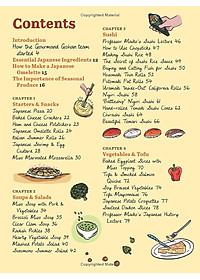 Contents
Introduction
How the Gourmand Gohan team
started 4
Essential Japanese Ingredients 12
How to Make a Japanese
Omelette 15
The Importance of Seasonal
Produce 16
CHAPTER 1
Starters & Snacks
Japanese Pizza 20
Baked Cheese Crackers 22
Ham and Cheese Potstickers 23
Japanese Omelette Rolls 24
Italian Summer Rolls 27
Japanese Shrimp & Egg
Custard 28
Miso Marinated Mozzarella 30
CHAPTER 2
Soups & Salads
Miso Soup with Pork &
Vegetables 34
Classic Miso Soup 35
Clear Clam Soup 36
Radish Pickles 38
Hearty Vegetable Soup 39
Mashed Potato Salad 40
Sunomono Summer Salad 42
CHAPTER 3
Sushi
Sushi Lecture 46
How to Use Chopsticks 47
Making Sushi Rice 48
The Secret of Sushi Rice
Buying and Cutting Fish for Sushi 50
Hosomaki Thin Rolls 52
Futomaki Fat Rolls 54
Uramaki Inside-Out California Rolls 56
Nigiri Sushi 58
Nigiri Sushi 61
Hand-rolled Temaki Sushi Cones 62
Chirashi Sushi 64
Beautiful Temari Sushi 66
CHAPTER 4
Vegetables & Tofu
Baked Eggplant Slices with
Miso Topping 70
Tofu & Smoked Salmon
72
Soy Braised Vegetables 74
Tofu Hamburgers 75
Japanese Potato Croquettes 77
Daikon Slices 78
Japanese History
Lecture 79